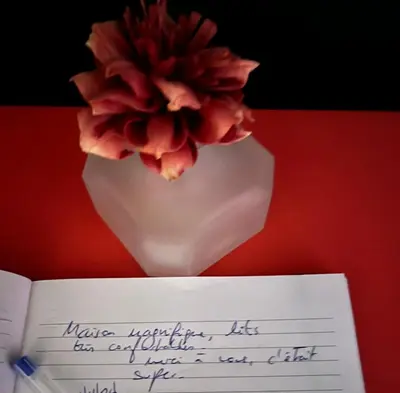 Maison magnifique, lits
très confortables.
merci à vous, c'était
super.